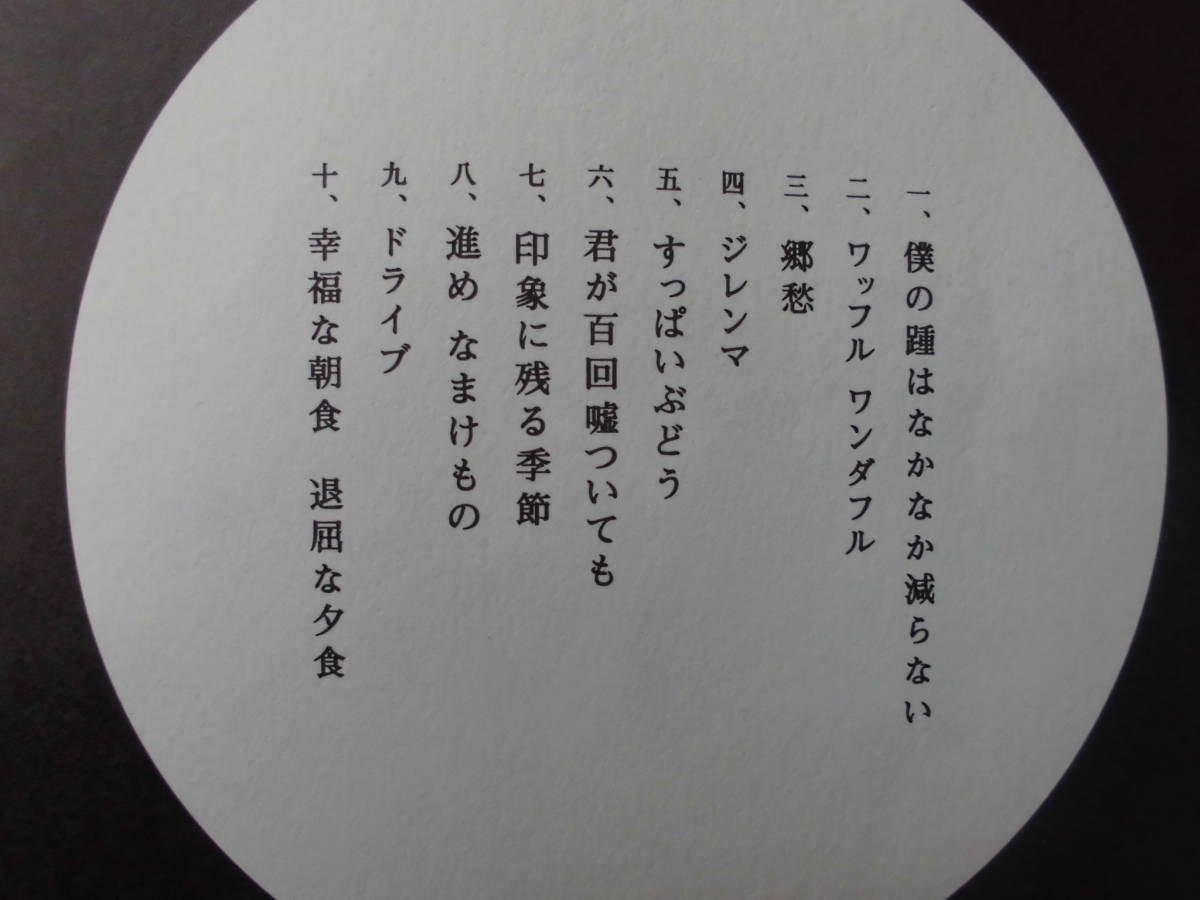 一、僕の踵はなかなか減らない
二、ワッフル ワンダフル
三、郷愁
四、ジレンマ
五、すっぱいぶどう
六、君が百回嘘ついても
七、印象に残る季節
八、進め なまけもの
九、ドライブ
十、幸福な朝食　退屈な夕食